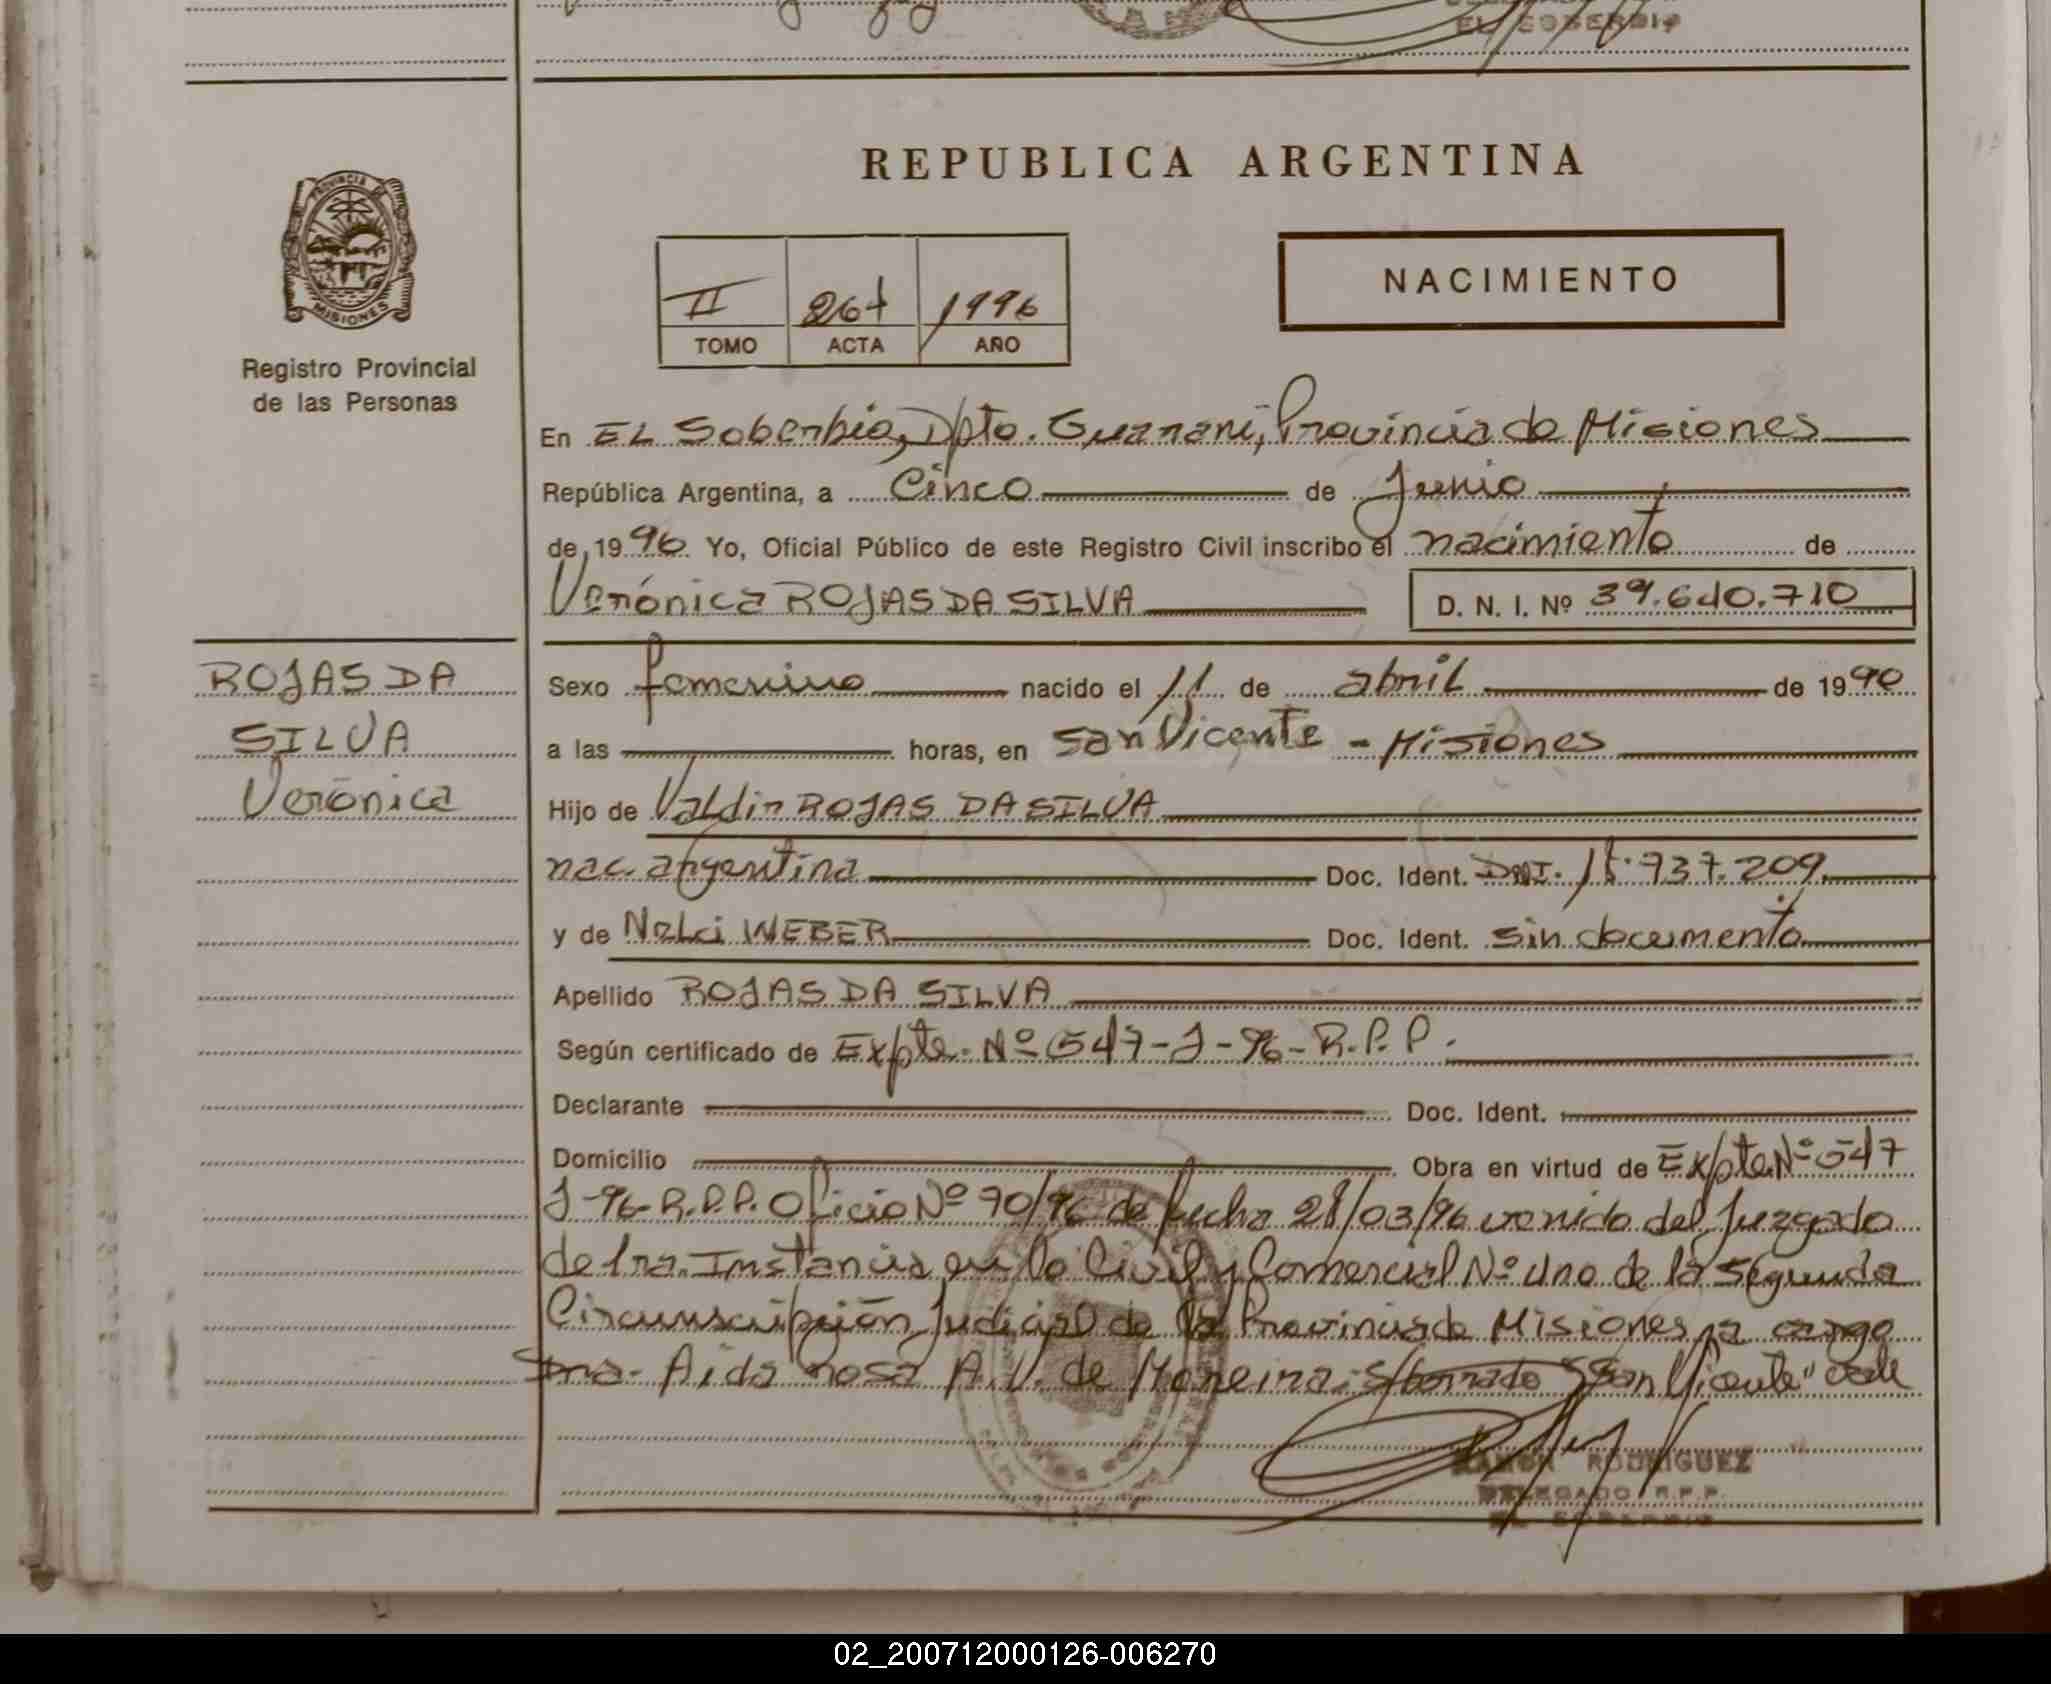 EL SOBERBIO
REPUBLICA ARGENTINA
PROVINCIA DE
MISIONES
Registro Provincial
de las Personas
II 267 1996
TOMO ACTA AÑO
NACIMIENTO
En EL Soberbio, Dpto. Guaraní, Provincia de Misiones
República Argentina, a Cinco de Junio
de 1996 Yo, Oficial Público de este Registro Civil inscribo el nacimiento de
Verónica ROJAS DA SILVA D. N. I. Nº 39.640.710
ROJAS DA
SILVA
Verónica
Sexo femenino nacido el 11 de abril de 1990
a las horas, en San Vicente - Misiones
Hijo de Valdir ROJAS DA SILVA
nac. argentina Doc. Ident. DNI. 15.737.209
y de Nelci WEBER Doc. Ident. sin documento
Apellido ROJAS DA SILVA
Según certificado de Expte. Nº 547-J-96-R.P.P.
Declarante Doc. Ident.
Domicilio Obra en virtud de Expte Nº 547
J-96-R.P.P. Oficio Nº 70/96 de fecha 28/03/96 venido del Juzgado
de 1ra. Instancia en lo Civil y Comercial Nº Uno de la Segunda
Circunscripción Judicial de la Provincia de Misiones, a cargo
Dra. Aida rosa A.V. de Moreira. S/borrado "San Vicente" vale
RAMON RODRIGUEZ
DELEGADO R.P.P.
EL SOBERBIO
02_200712000126-006270